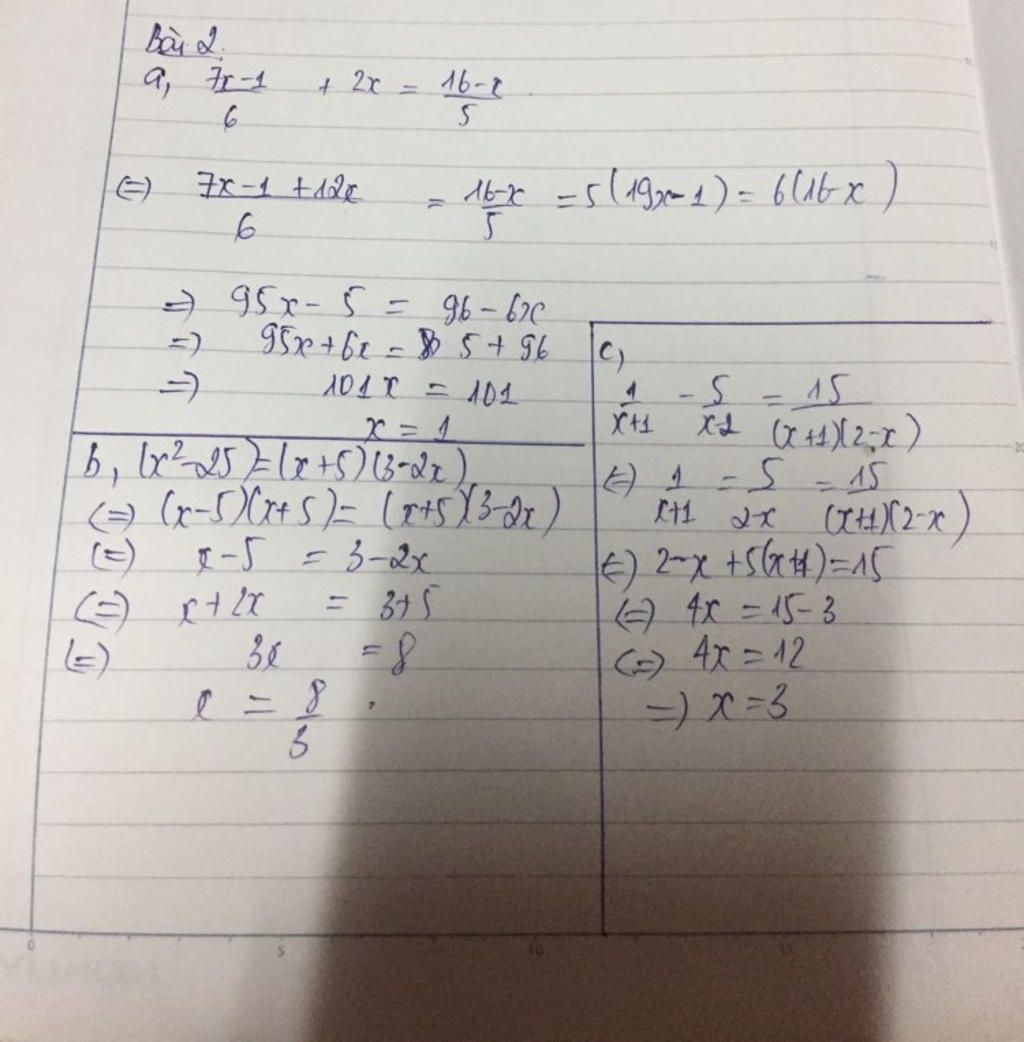 Bài 2.
a, (7x-1)/6 + 2x = (16-x)/5
(=) (7x-1+12x)/6 = (16-x)/5 = 5(19x-1) = 6(16-x)
=) 95x - 5 = 96 - 6x
=) 95x + 6x = 5 + 96
=) 101x = 101
x = 1
b, (x²-25) = (x+5)(3-2x)
(=) (x-5)(x+5) = (x+5)(3-2x)
(=) x-5 = 3-2x
(=) x+2x = 3+5
(=) 3x = 8
x = 8/3
c,
1/(x+1) - 5/(x-2) = 15/((x+1)(2-x))
(=) 1/(x+1) = 5/(2-x) = 15/((x+1)(2-x))
(=) 2-x+5(x+1)=15
(=) 4x = 15-3
(=) 4x = 12
=) x = 3
0 5 10 15